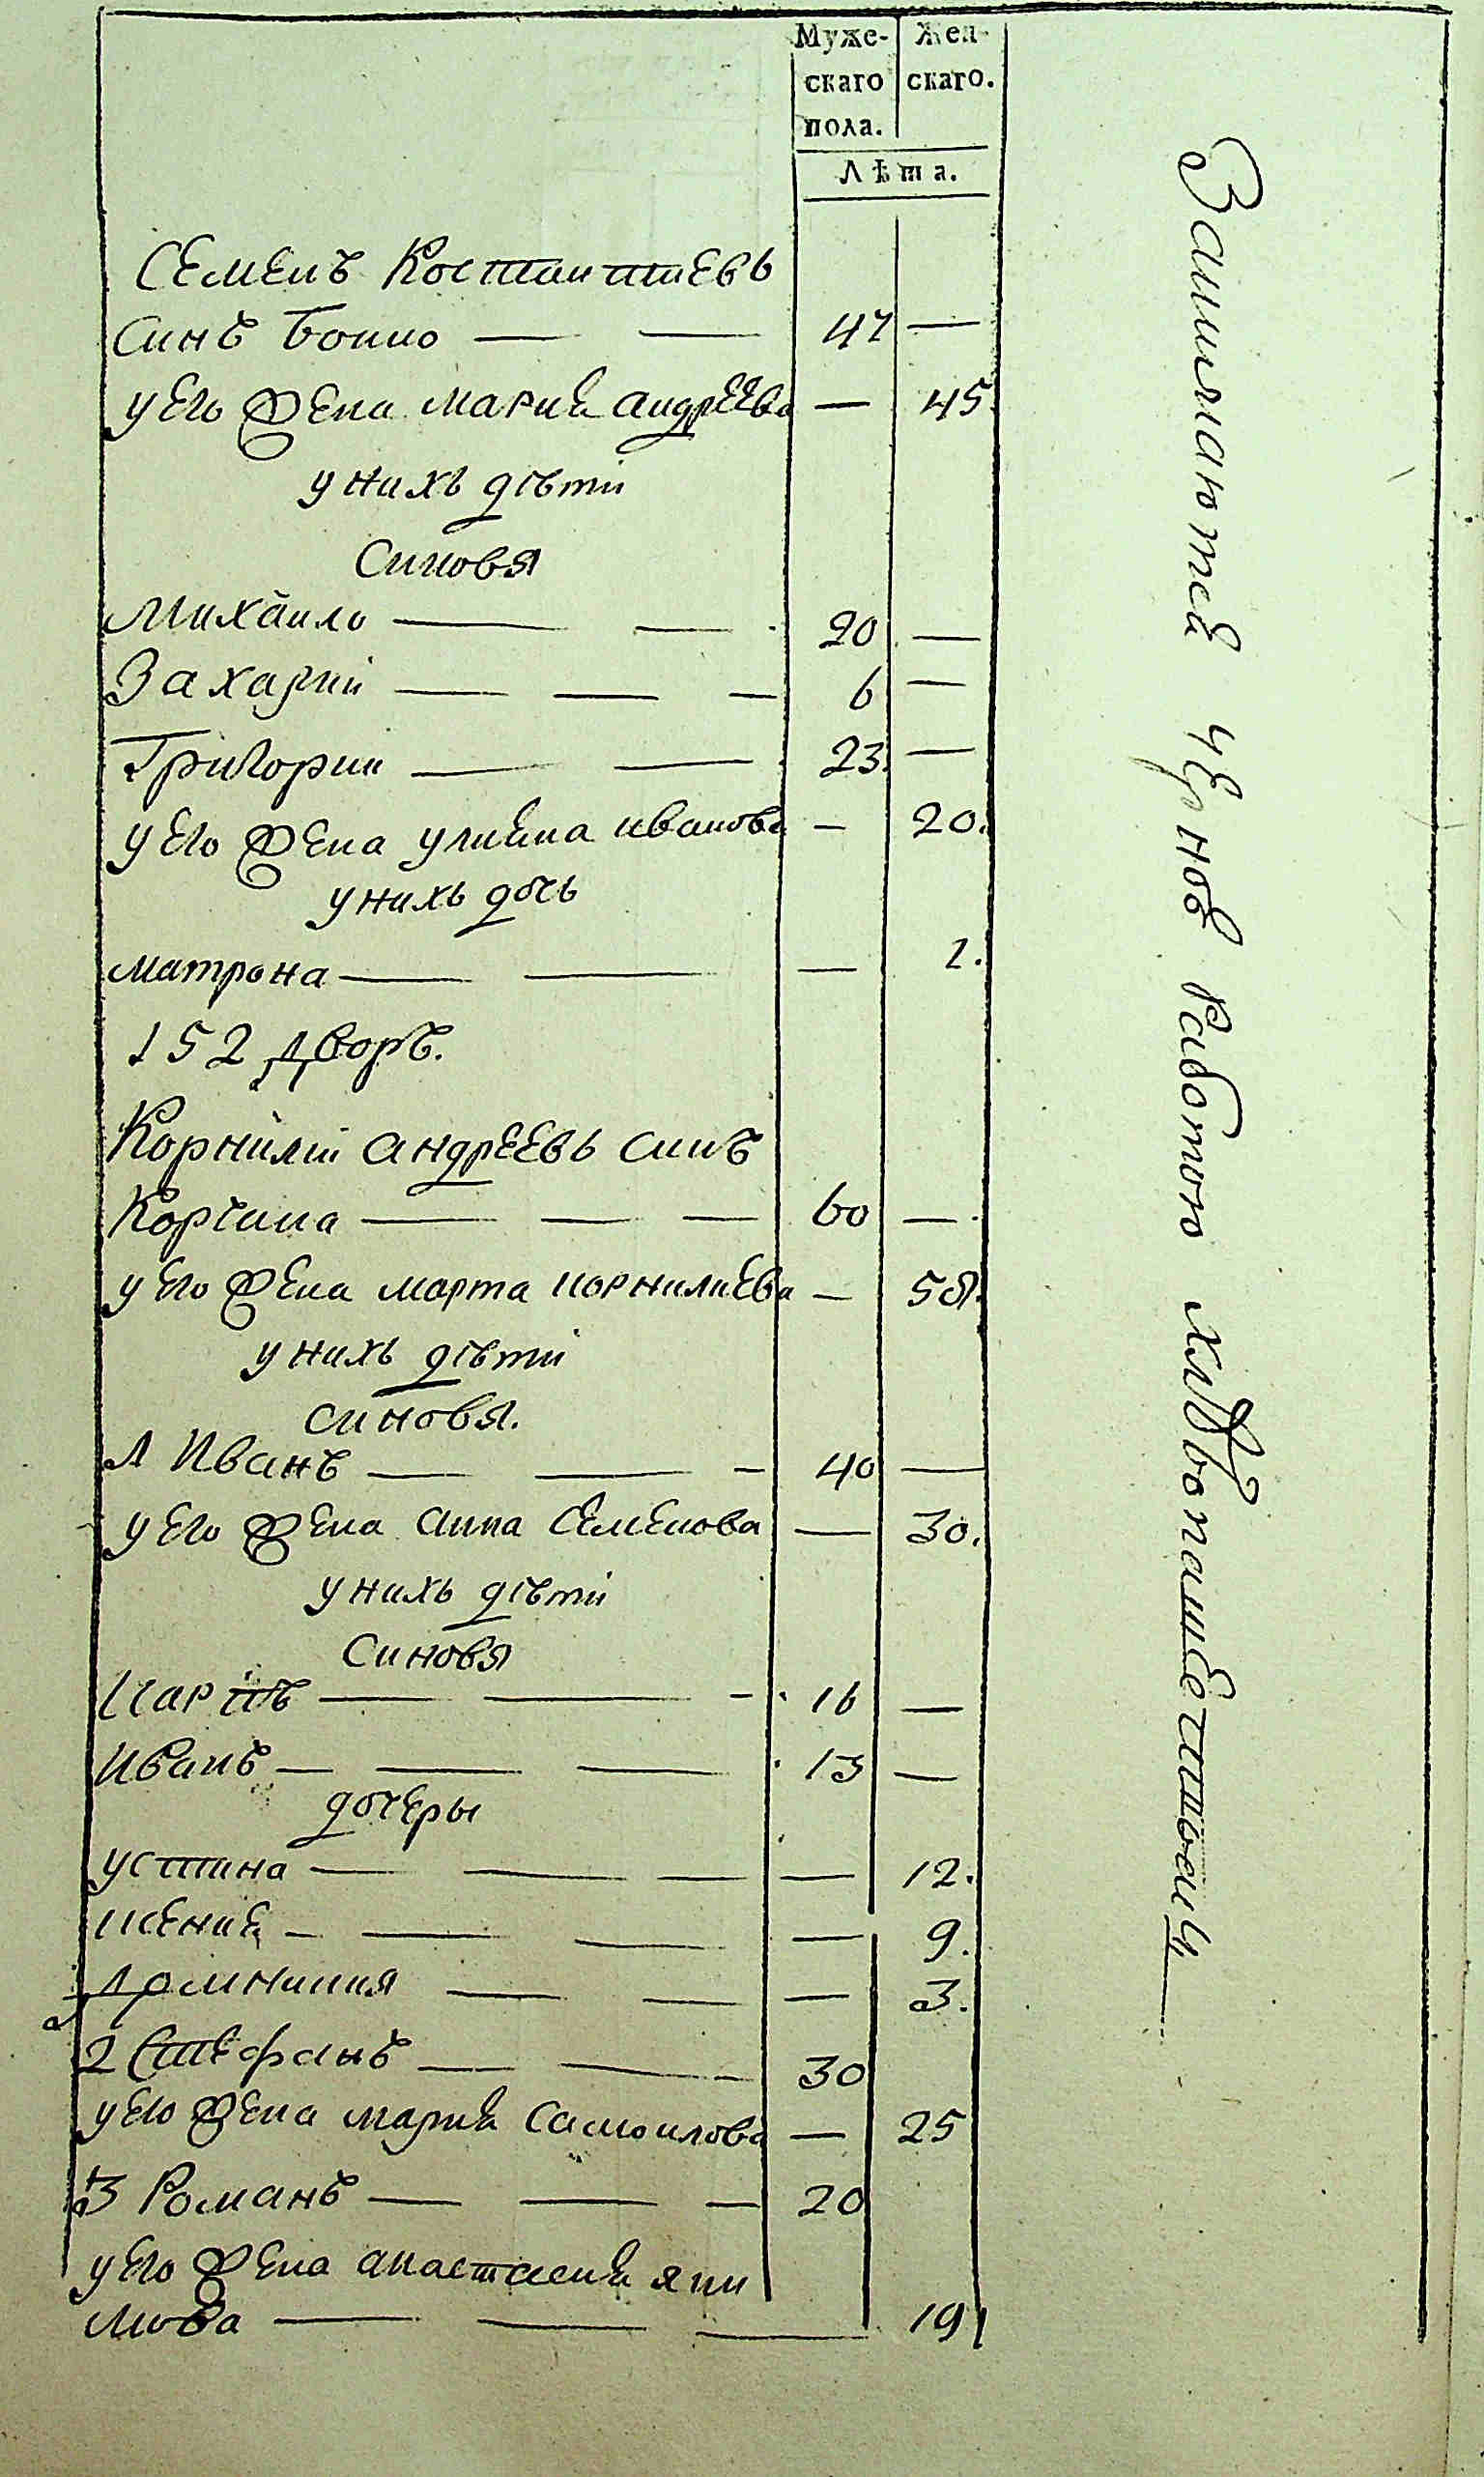 Муже-
скаго
пола.
Жен-
скаго.
Лѣта.
Семенъ Костантиевъ
Синъ Бойко — — 47 —
у его жена Мария андреева — 45
у нихъ дѣти
Синовя
Михаило — — 20 —
Захарий — — — 6 —
Григории — — 23 —
у его жена улияна иванова — 20.
у нихъ дочь
матрона — — — 1.
152 дворъ.
Корнилій андреевъ синъ
Корчина — — — 60 —
у его жена марта корнилиева — 58.
у нихъ дѣти
синовя.
1 Иванъ — — — 40 —
у его жена анна Семенова — 30.
у нихъ дѣти
Синовя
Карпъ — — — 16 —
Иванъ — — — 13 —
дочеры
устина — — — — 12.
ксения — — — — 9.
Домникия — — — 3.
2 Стефанъ — — 30
у его жена мария Самоилова — 25
3 Романъ — — — 20
у его жена анастасия яки
мова — — — 19
Занимаются черною работою хлѣбопашествомъ